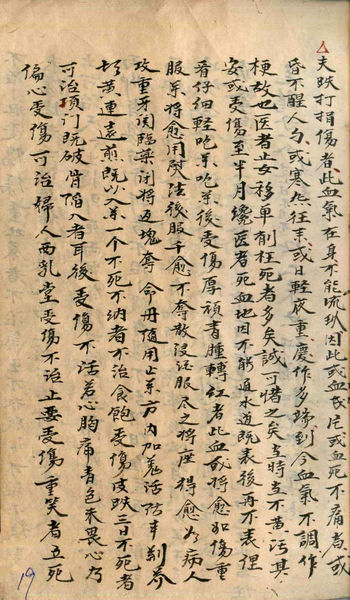 夫跌打損傷者此血氣在身不能流行因此或血成片或血死不痛者或
昏不醒人事或寒热往来或日輕夜重變作多端到今血氣不調作
梗故也医者妄移单制枉死者多矣誠可惜之矣
安或受傷至半月纔医者死血地因不能通水道既表後再不表理
看仔細輕吃藥吃藥後受傷厚頑青腫轉紅者此血或將愈如傷重
服藥將愈用熨法後服千愈不奪散浸征服尽之將座得愈為病人
攻重牙関臨藥闭將返魂奪命丹随用止藥方内加羗活防丰荆芥
黄連遠煎既以入藥一个不死不纳者不治食飽受傷皮跌三日不死者
可治頂门既破骨陷入者耳後受傷不活若心胸痛青色未畏心乃
偏心受傷可治婦人两乳堂受傷不治止要受傷重笑者五死
19